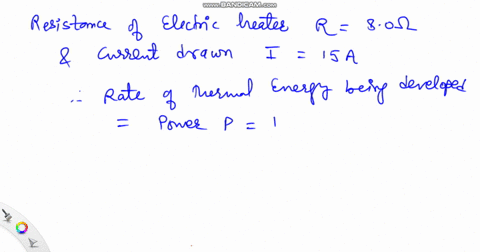 WWW.BANDICAM.COM
Resistance of Electric heater R = 8.0Ω
& Current drawn I = 15A
∴ Rate of Thermal Energy being developed
= Power P = I